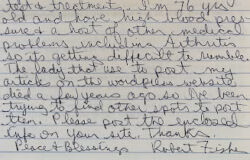 tests & treatments. I'm 76 yrs
old and have high blood pres
sure & a host of other medical
problems including Arthritis
so its getting difficult to
The lady that use to post my
articles on its wordpress website
died a few years ago so I've been
trying to find other spots to post
them. Please post the enclosed
info on your site. Thanks.
Peace & Blessings Robert Fisher